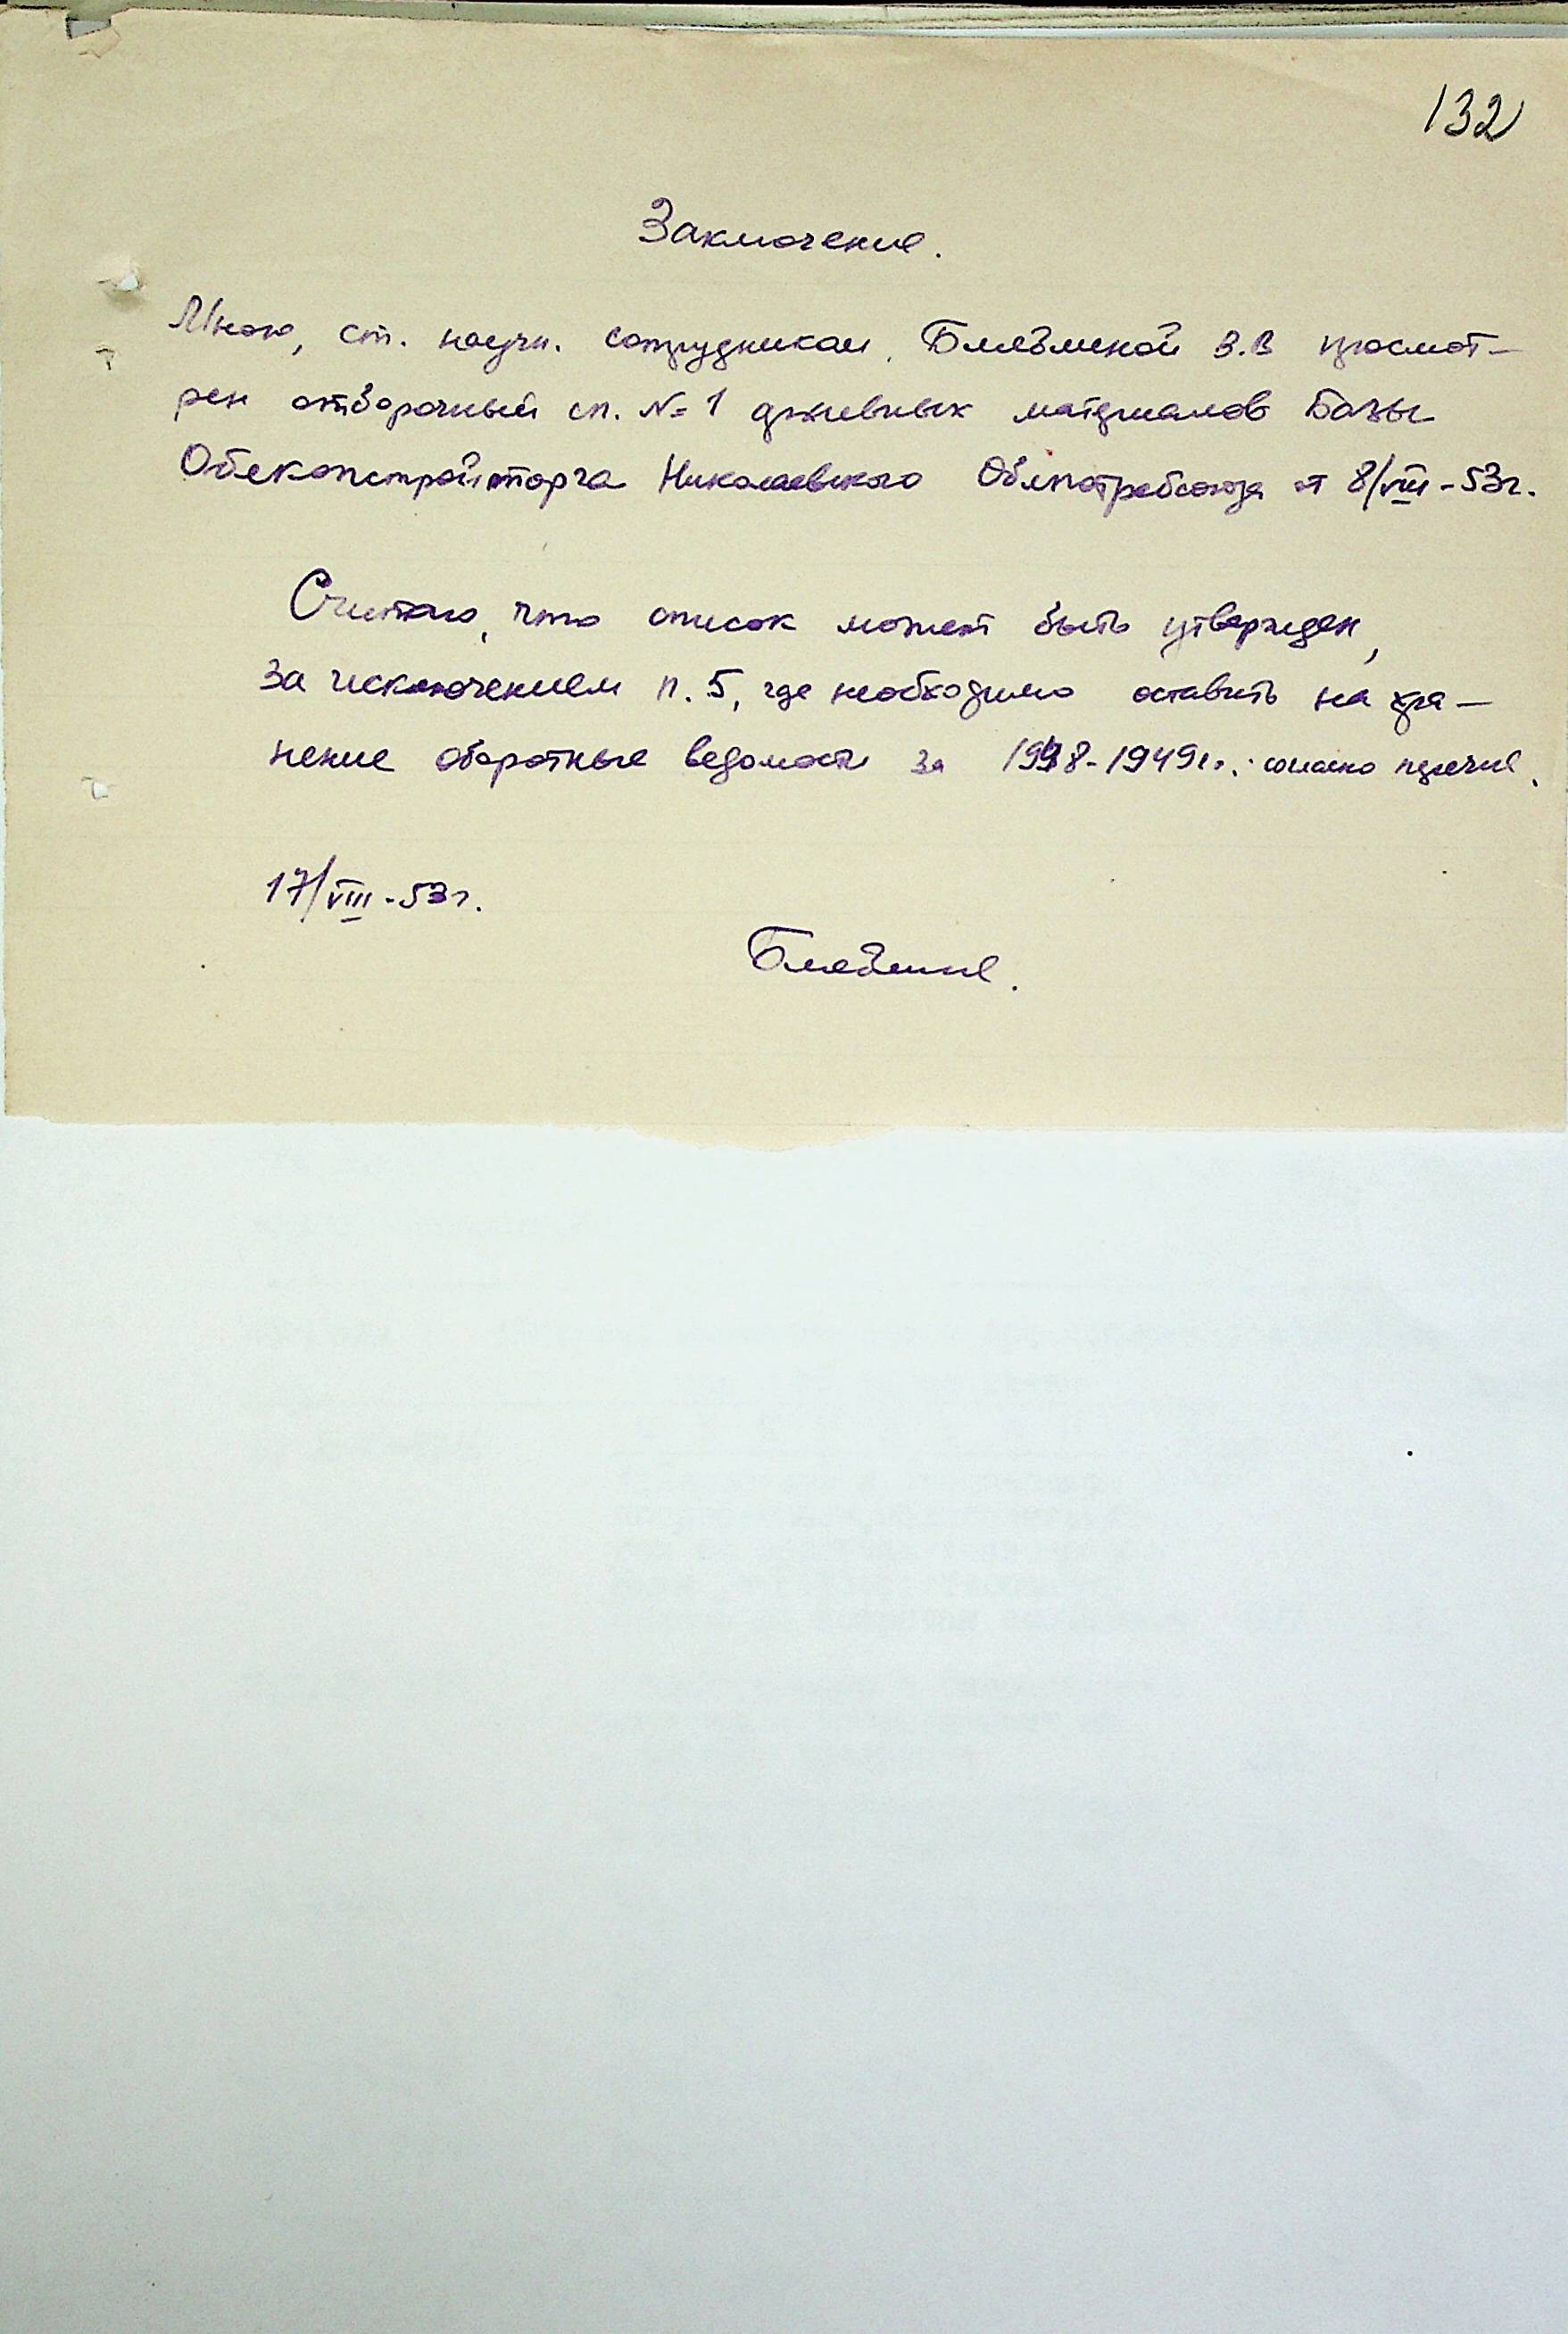 132
Заключение.
Мною, ст. научн. сотрудником В.В просмот-
рен отборочный сп. № 1 архивных материалов Базы
Облекопстройторга Николаевского Облпотребсоюза от 8/VIII-53г.
Считаю, что список может быть утвержден,
за исключением п. 5, где необходимо оставить на хра-
нение оборотные ведомости за 1948-1949г., согласно перечня.
17/VIII-53г.